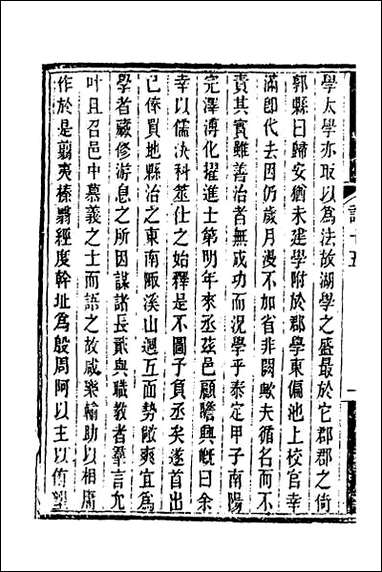 學太學亦取以為法故湖學之盛最於它郡郡之倚
郭縣曰歸安猶未建學附於郡學東偏池上校官幸
滿即代去因仍歲月漫不加省非闕歟夫循名而不
責其實雖善治者無成功而況學乎泰定甲子南陽
完澤溥化擢進士第明年來丞茲邑顧瞻興慨曰余
幸以儒決科筮仕之始釋是不圖子負丞矣遂首出
己俸買地縣治之東南陬溪山迴互面勢敞爽宜為
學者藏修游息之所因謀諸長貳與職教者羣言允
叶且召邑中慕義之士而語之故咸樂輸助以相庸
作於是翦夷榛翳經度幹址為殿周阿以主以